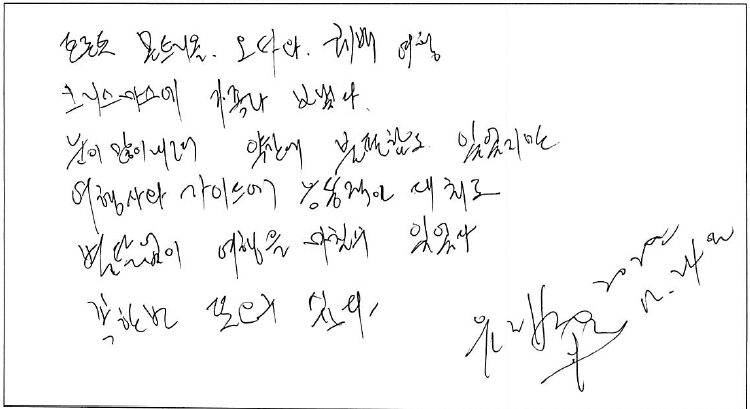 토론토 몬트리올. 오타와. 퀘백 여행
크리스마스에 가족과 보냈다.
눈이 많이 내려 약간에 불편함도 있었지만
여행사와 가이드에 능동적인 대처로
별탈없이 여행을 마칠수 있었다
꼭 한번 오고 싶다,
12. 24일